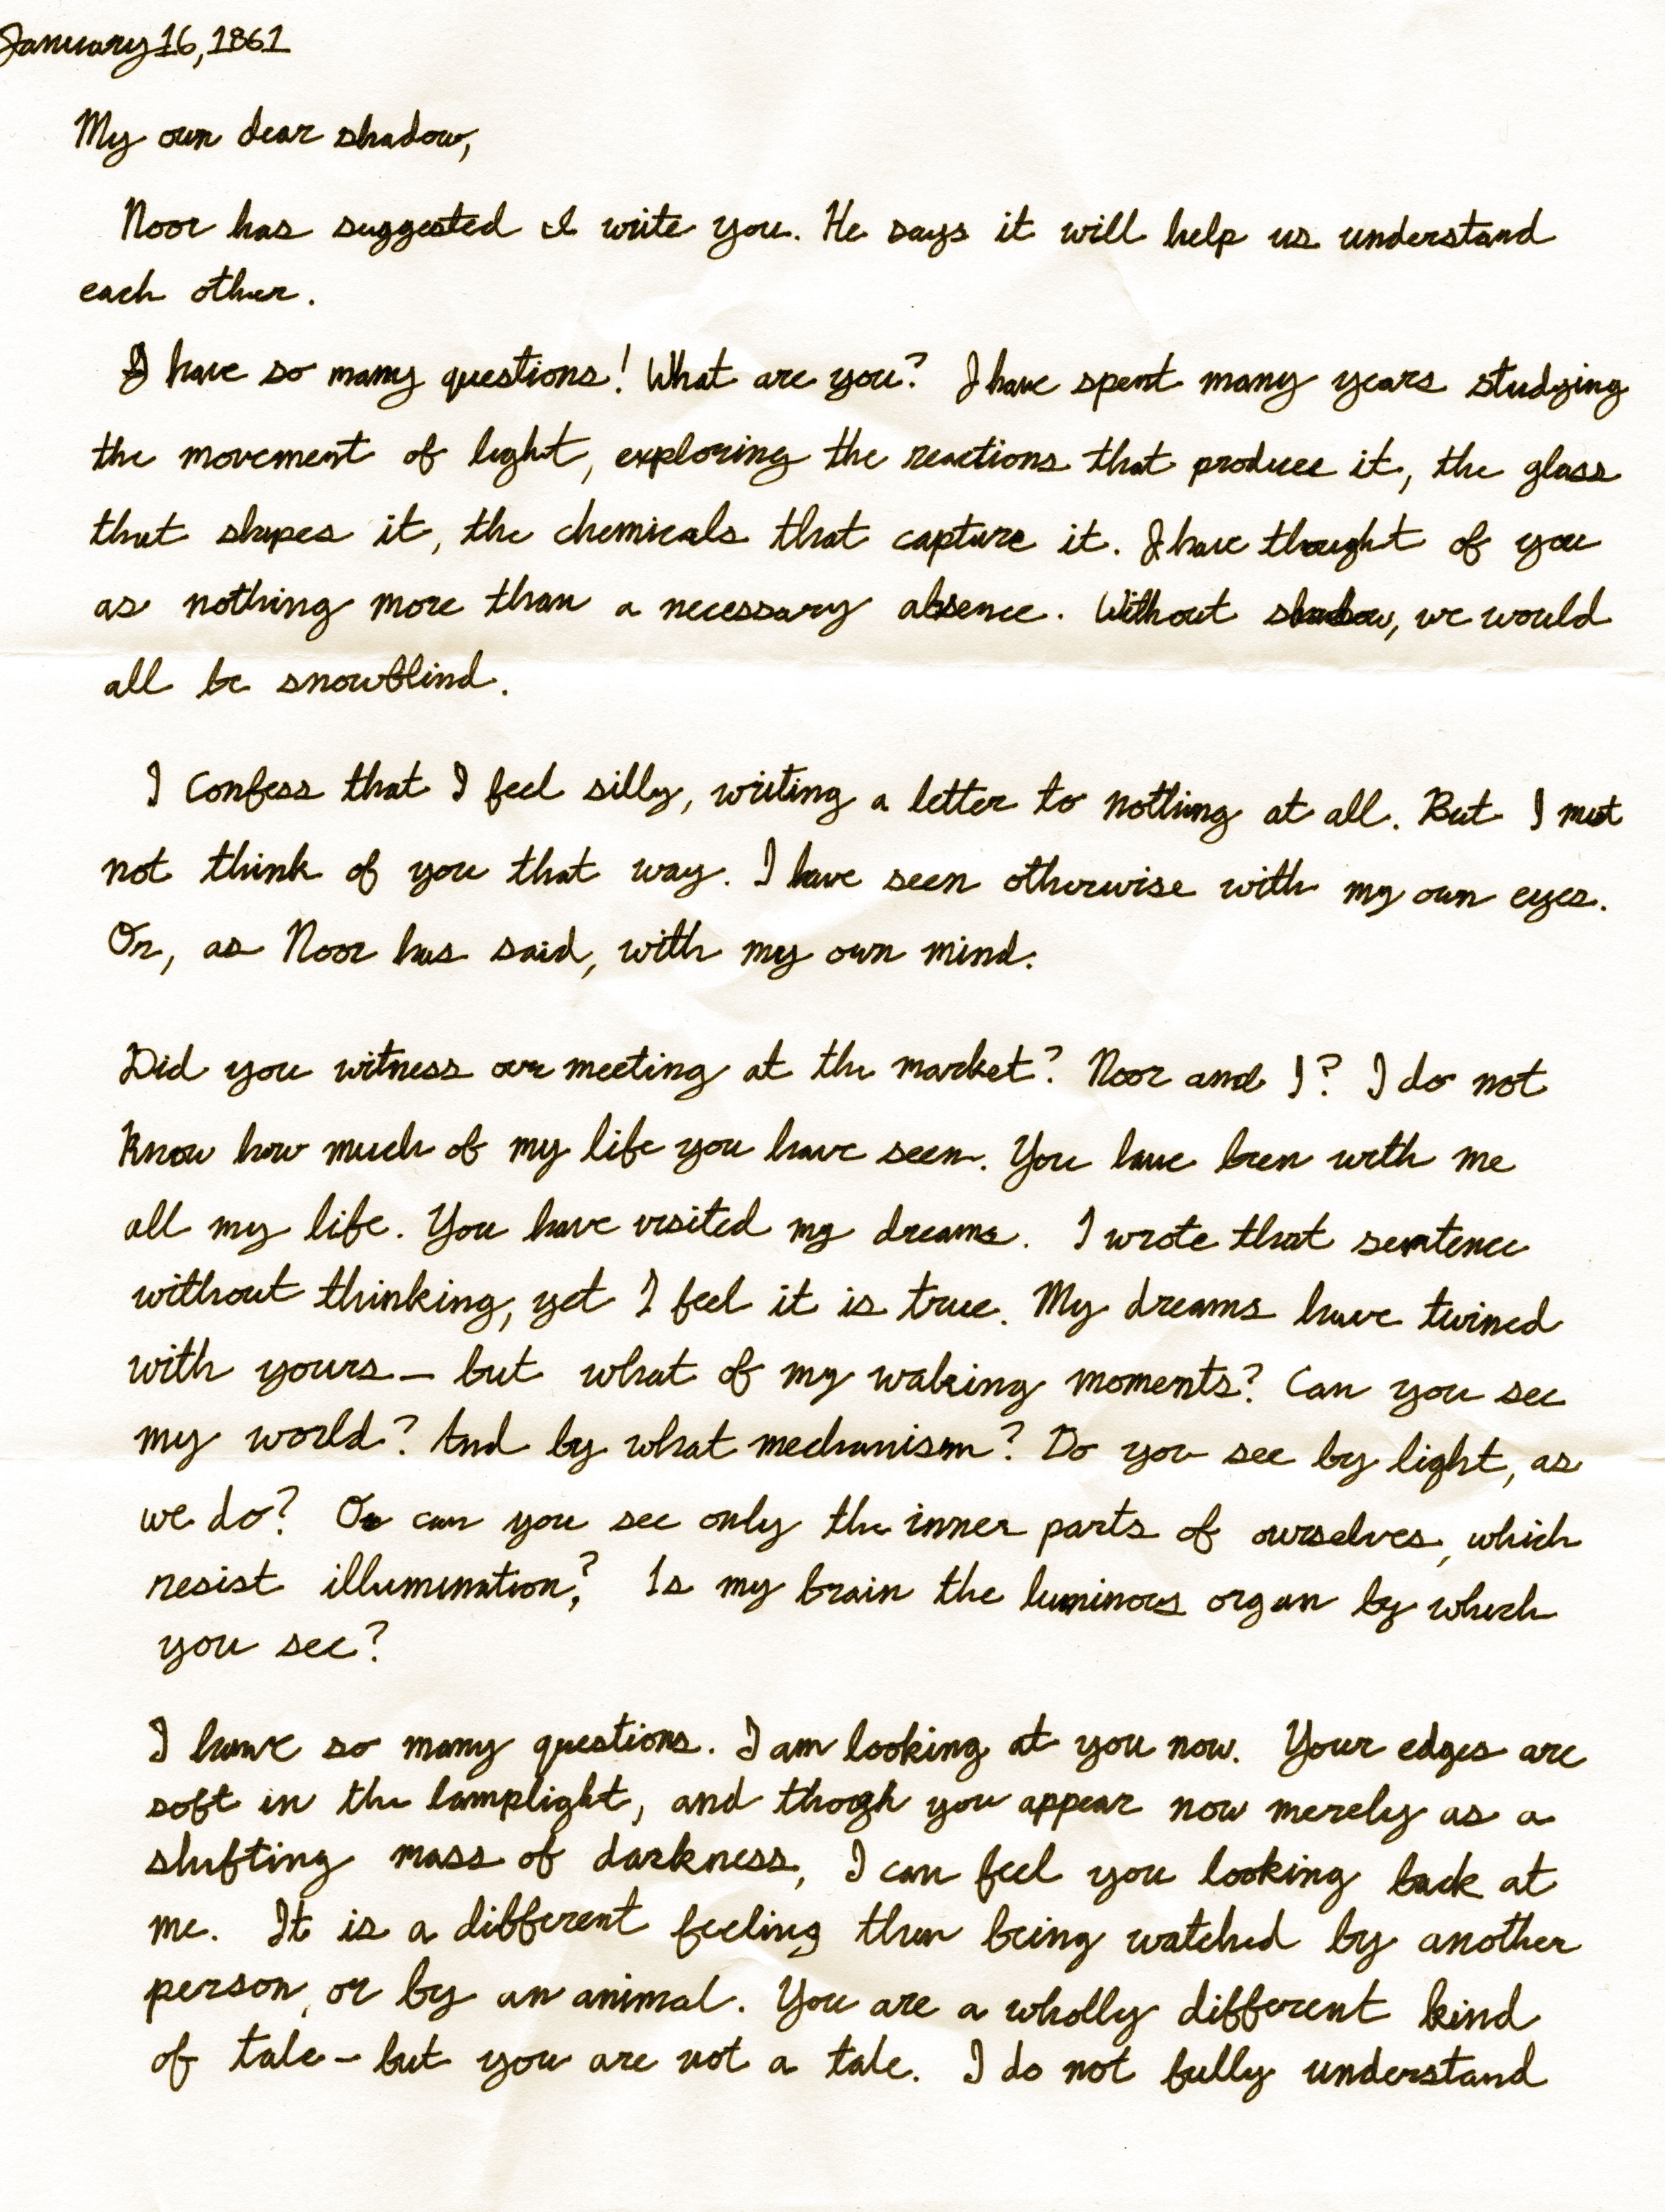 January 16, 1861
My own dear shadow,
Noor has suggested I write you. He says it will help us understand
each other.
I have so many questions! What are you? I have spent many years studying
the movement of light, exploring the reactions that produce it, the glass
that shapes it, the chemicals that capture it. I have thought of you
as nothing more than a necessary absence. Without shadow, we would
all be snowblind.
I confess that I feel silly, writing a letter to nothing at all. But I must
not think of you that way. I have seen otherwise with my own eyes.
Or, as Noor has said, with my own mind.
Did you witness our meeting at the market? Noor and I? I do not
know how much of my life you have seen. You have been with me
all my life. You have visited my dreams. I wrote that sentence
without thinking, yet I feel it is true. My dreams have twined
with yours — but what of my waking moments? Can you see
my world? And by what mechanism? Do you see by light, as
we do? Or can you see only the inner parts of ourselves, which
resist illumination? Is my brain the luminous organ by which
you see?
I have so many questions. I am looking at you now. Your edges are
soft in the lamplight, and though you appear now merely as a
shifting mass of darkness, I can feel you looking back at
me. It is a different feeling than being watched by another
person, or by an animal. You are a wholly different kind
of tale — but you are not a tale. I do not fully understand